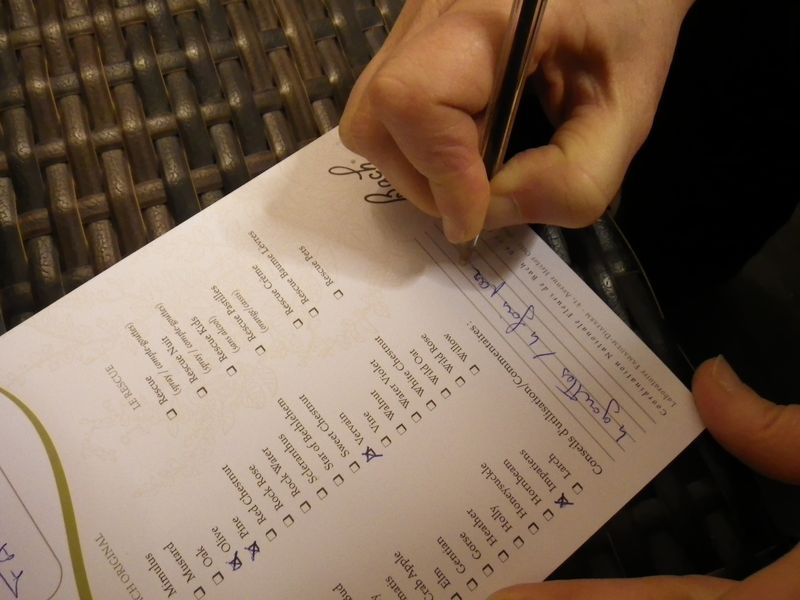 Bach®
LE RESCUE
Rescue
(spray / compte-gouttes)
Rescue Nuit
(spray / compte-gouttes)
Rescue Kids
(sans alcool)
Rescue Pastilles
(orange/cassis)
Rescue Crème
Rescue Baume Lèvres
Rescue Pets
CH ORIGINAL
Mimulus
Mustard
Oak
Olive
Pine
Red Chestnut
Rock Rose
Rock Water
Scleranthus
Star of Bethlehem
Sweet Chestnut
Vervain
Vine
Walnut
Water Violet
White Chestnut
Wild Oat
Wild Rose
Willow
Bud
Crab Apple
Elm
Gentian
Gorse
Heather
Holly
Honeysuckle
Hornbeam
Impatiens
Larch
Conseils d'utilisation/Commentaires :
4 gouttes / 4 fois par
Coordination Nationale Fleurs de Bach